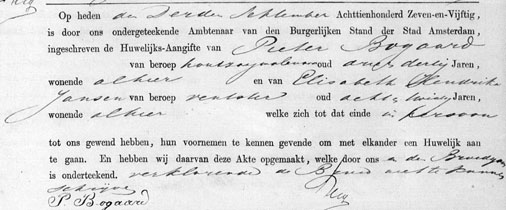 Op heden den Derden September Achttienhonderd Zeven-en-Vijftig,
is door ons ondergeteekende Ambtenaar van den Burgerlijken Stand der Stad Amsterdam,
ingeschreven de Huwelijks-Aangifte van Pieter Bogaard
van beroep houtzaagmolenaar oud dertig Jaren,
wonende alhier en van Elisabeth Hendrika
Jansen van beroep oud acht en twintig Jaren,
wonende alhier welke zich tot dat einde in persoon
tot ons gewend hebben, hun voornemen te kennen gevende om met elkander een Huwelijk aan
te gaan. En hebben wij daarvan deze Akte opgemaakt, welke door ons en de Bruidegom
is onderteekend. verklarende de Bruid niet te kunnen
schrijven
P. Bogaard